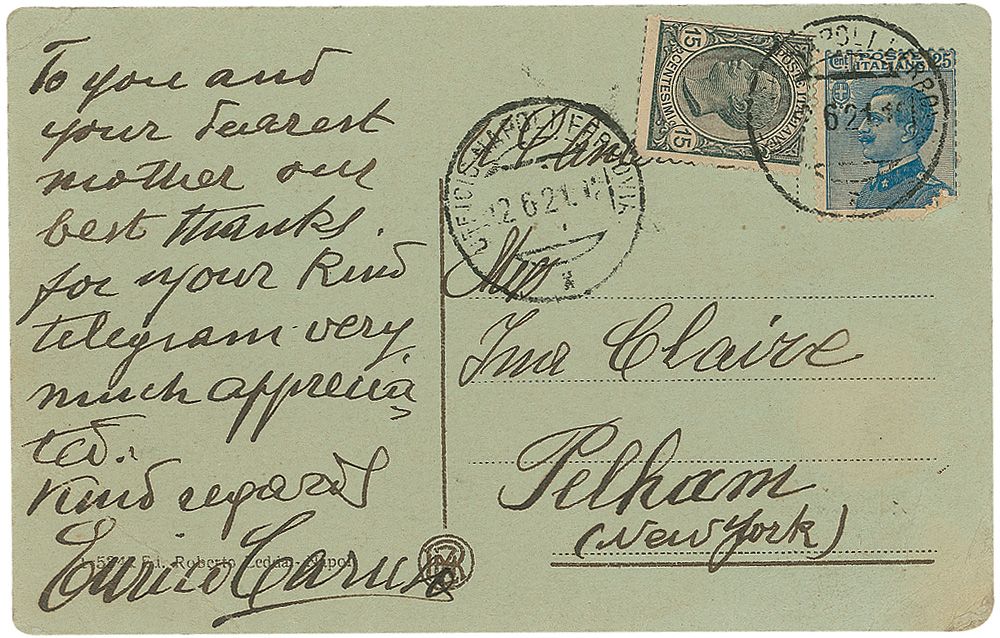 To you and
your dearest
mother our
best thanks.
for your kind
telegram very
much apprecia
ted.
Kind regards
Enrico Caruso
Miss
Ina Claire
Pelham
(New York)
15 CENTESIMI 15
POSTE ITALIANE
Cent POSTE 25
ITALIANE
NAPOLI FERROVIA
12.6.21.
6 21.
Roberto Zeddai - Napoli